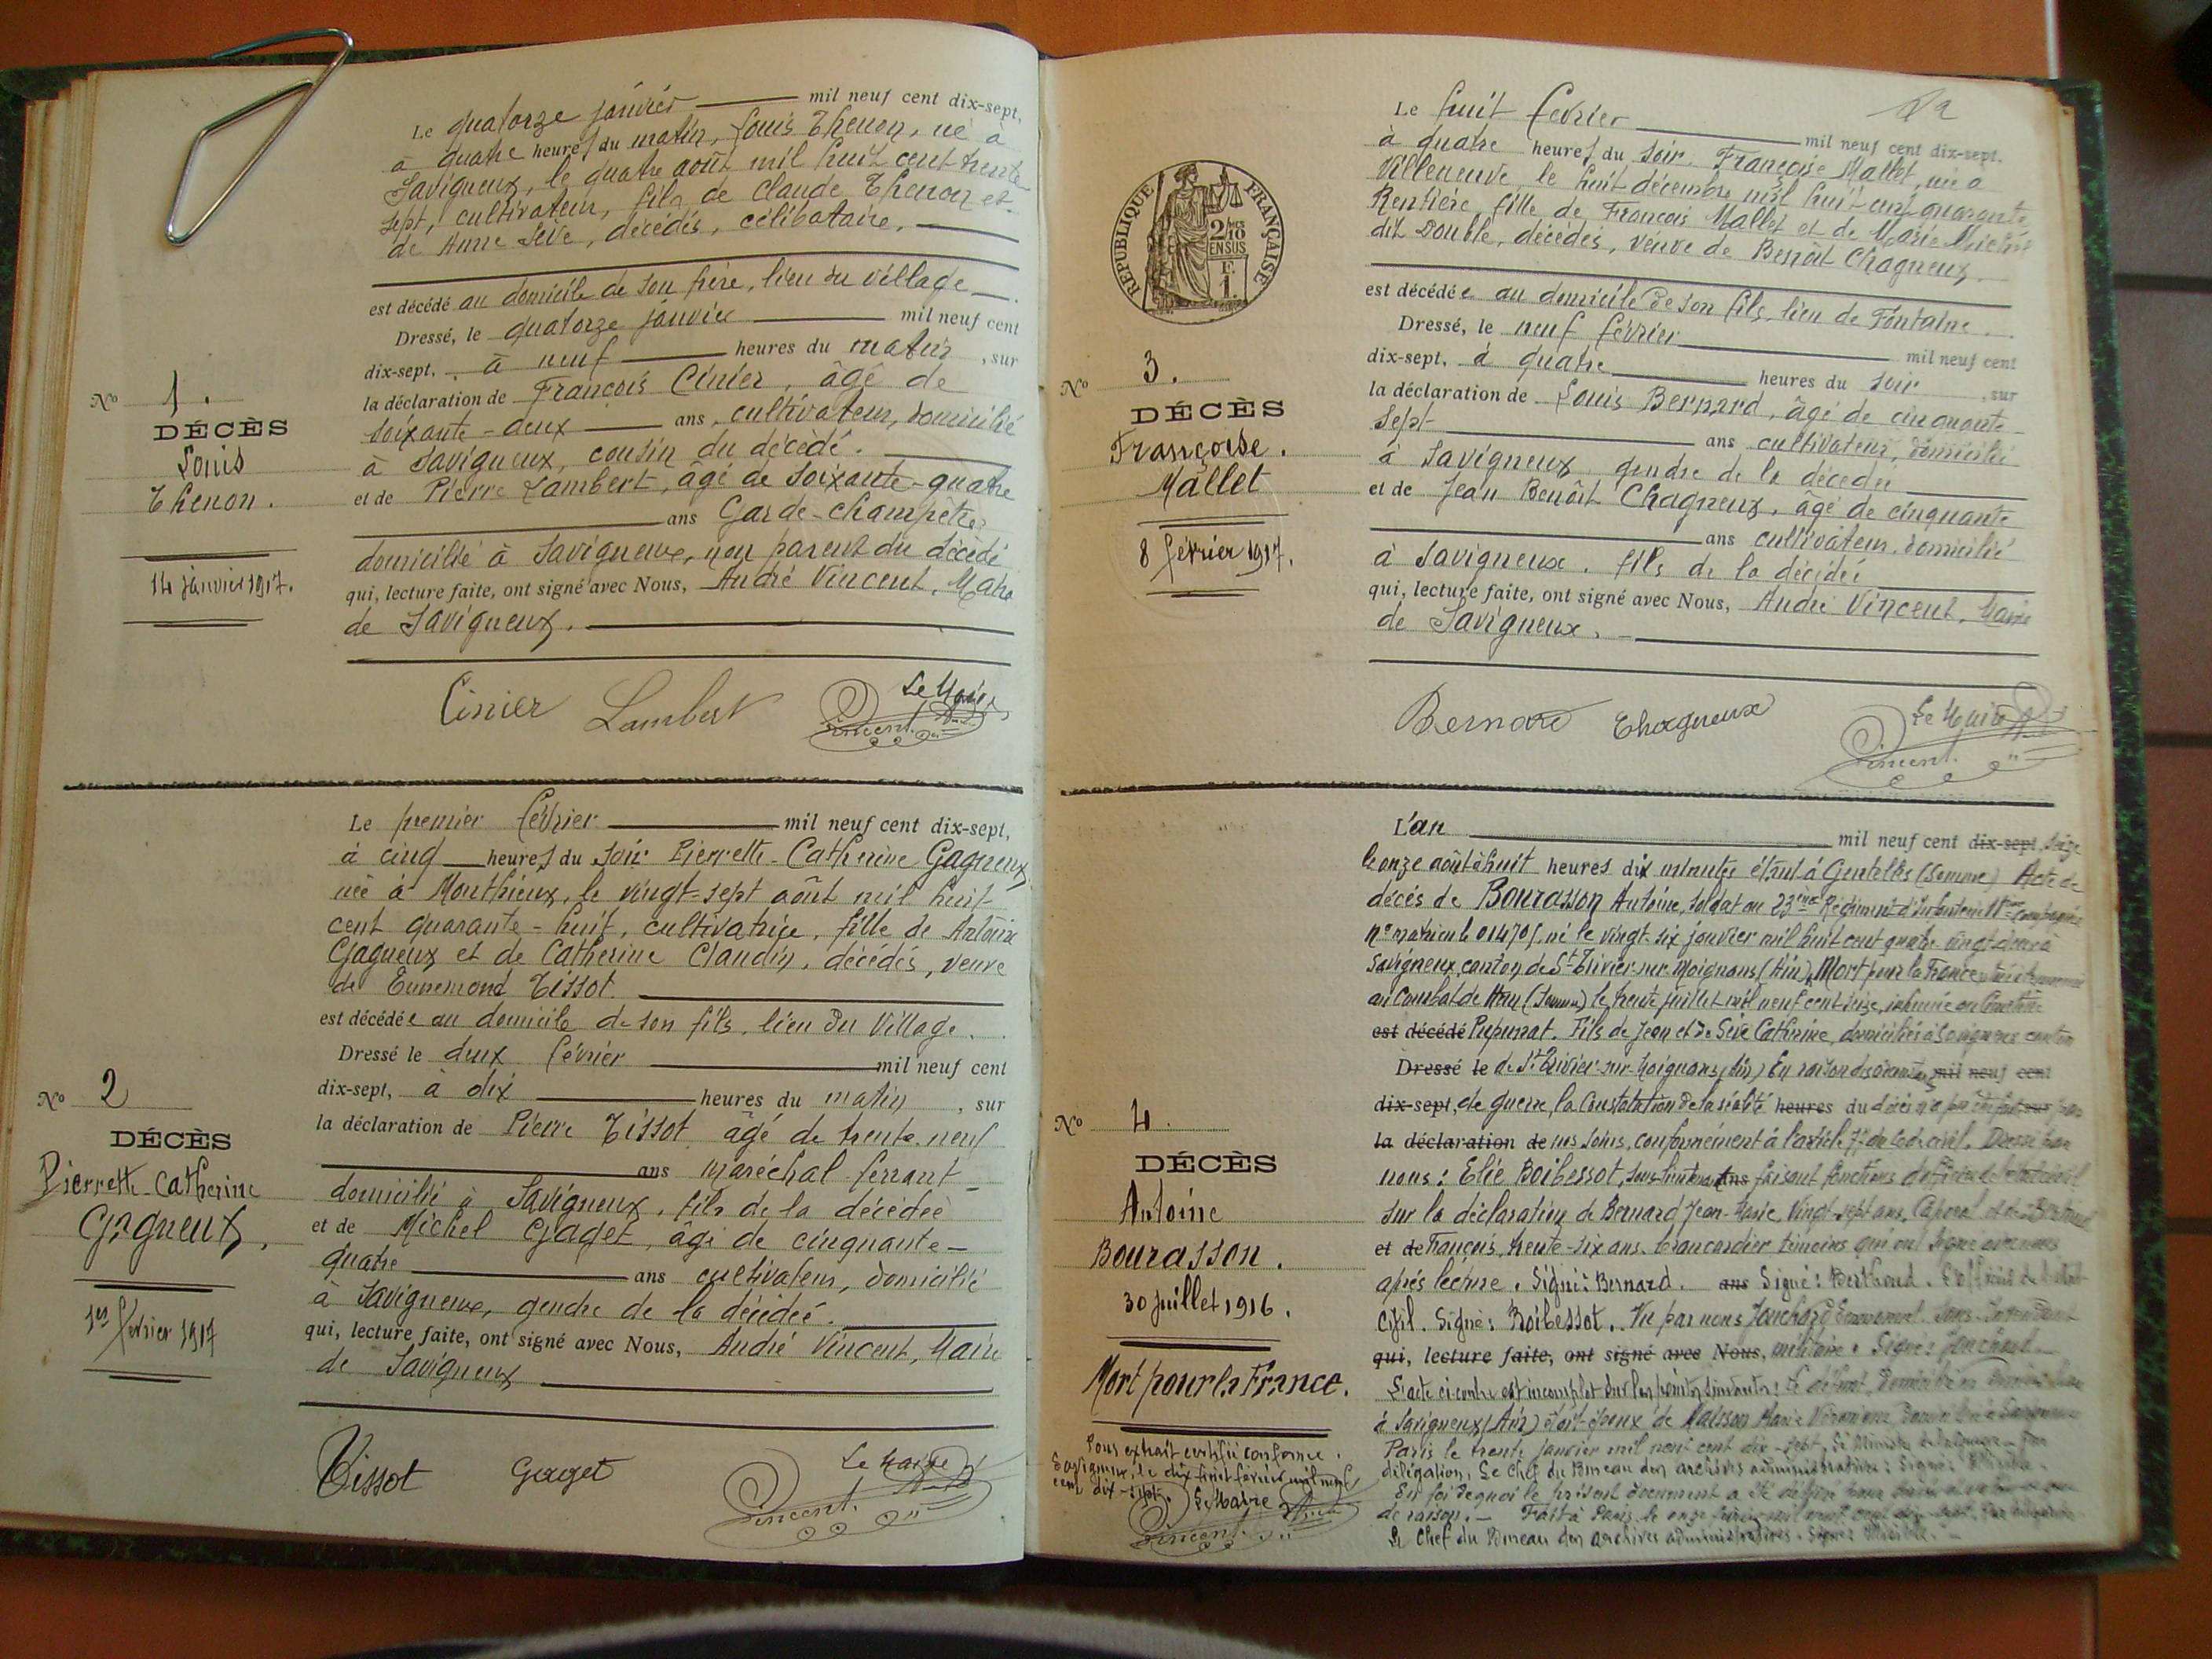 Le quatorze janvier mil neuf cent dix-sept,
à quatre heures du matin, Louis Thenon, né à
Savigneux, le quatre août mil huit cent trente
sept, cultivateur, fils de Claude Thenon et
de Anne Sève, décédés, célibataire,
est décédé au domicile de son frère, lieu du village
Dressé, le quatorze janvier mil neuf cent
dix-sept, à neuf heures du matin, sur
la déclaration de François Cinier, âgé de
soixante-deux ans, cultivateur, domicilié
à Savigneux, cousin du décédé.
et de Pierre Lambert, âgé de soixante-quatre
ans Garde-champêtre
domicilié à Savigneux, non parent du décédé
qui, lecture faite, ont signé avec Nous, André Vincent, Maire
de Savigneux.
Cinier Lambert Le Maire
Vincent
No 1.
DÉCÈS
Louis
Thenon.
14 janvier 1917.
Le premier février mil neuf cent dix-sept,
à cinq heures du soir Pierrette-Catherine Gagneux,
née à Monthieux, le vingt-sept août mil huit
cent quarante-huit, cultivatrice, fille de Antoine
Gagneux et de Catherine Claudin, décédés, veuve
de Ennemond Tissot.
est décédée au domicile de son fils, lieu du Village.
Dressé le deux février mil neuf cent
dix-sept, à dix heures du matin, sur
la déclaration de Pierre Tissot âgé de trente-neuf
ans maréchal-ferrant
domicilié à Savigneux, fils de la décédée
et de Michel Gaget, âgé de cinquante-
quatre ans cultivateur, domicilié
à Savigneux, gendre de la décédée.
qui, lecture faite, ont signé avec Nous, André Vincent, Maire
de Savigneux
Tissot Gaget Le Maire
Vincent
No 2
DÉCÈS
Pierrette-Catherine
Gagneux.
1er février 1917
Le huit février mil neuf cent dix-sept,
à quatre heures du soir, Françoise Mallet, née à
Villeneuve le huit décembre mil huit cent quarante
Rentière, fille de François Mallet et de Marie
dit Double, décédés, veuve de Benoît Chagneux.
est décédée au domicile de son fils, lieu de Fontaine.
Dressé, le neuf février mil neuf cent
dix-sept, à quatre heures du soir, sur
la déclaration de Louis Bernard, âgé de cinquante
sept ans cultivateur, domicilié
à Savigneux gendre de la décédée
et de Jean Benoît Chagneux, âgé de cinquante
ans cultivateur, domicilié
à Savigneux, fils de la décédée
qui, lecture faite, ont signé avec Nous, André Vincent, Maire
de Savigneux.
Bernard Chagneux Le Maire
Vincent
RÉPUBLIQUE FRANÇAISE
2/10
EN SUS
1 F.
No 3.
DÉCÈS
Françoise
Mallet
8 février 1917.
L'an mil neuf cent dix-sept seize
le onze août à huit heures dix minutes étant à Gentelles (Somme) Acte de
décès de Bourasson Antoine, soldat au 23ème Régiment d'Infanterie 11ème compagnie
n° matricule 01470, né le vingt-six janvier mil huit cent quatre-vingt à
Savigneux, canton de St Trivier-sur-Moignans (Ain), Mort pour la France
au Combat de (Somme) le trente juillet mil neuf cent seize, inhumé au Cimetière
est décédé Fils de Jean et de Sève Catherine, domiciliés à Savigneux canton
Dressé le de St Trivier-sur-Moignans (Ain) En raison des mil neuf cent
dix-sept, de guerre, la Constatation de la réalité heures du décès n'a pu être sur
la déclaration de nos soins, conformément à l'article 77 du Code civil. Dressé par
nous: Elie Boibessot, sous-lieutenant ans faisant fonctions d'officier de l'état civil
sur la déclaration de Bernard Jean-Marie, Vingt-sept ans, Caporal et de
et de François, trente-six ans, brancardier témoins qui ont signé avec nous
après lecture. Signé: Bernard. ans Signé: Berthaud. L'officier de l'état
Civil. Signé: Boibessot. Vu par nous Sous-Intendant
qui, lecture faite, ont signé avec Nous, militaire. Signé:
L'acte ci-contre est incomplet sur les points suivants: Le défunt
à Savigneux (Ain) époux de Marie
Paris le trente janvier mil neuf cent dix-sept. Le Ministre
délégation, Le Chef du Bureau des archives administratives: Signé:
En foi de quoi le présent document a été
de raison. Fait à Paris le onze février mil neuf cent dix-sept.
Le Chef du Bureau des archives administratives. Signé:
No 4.
DÉCÈS
Antoine
Bourasson.
30 juillet 1916.
Mort pour la France.
Pour extrait certifié conforme.
Savigneux, le dix huit février mil neuf
cent dix-sept. Le Maire
Vincent